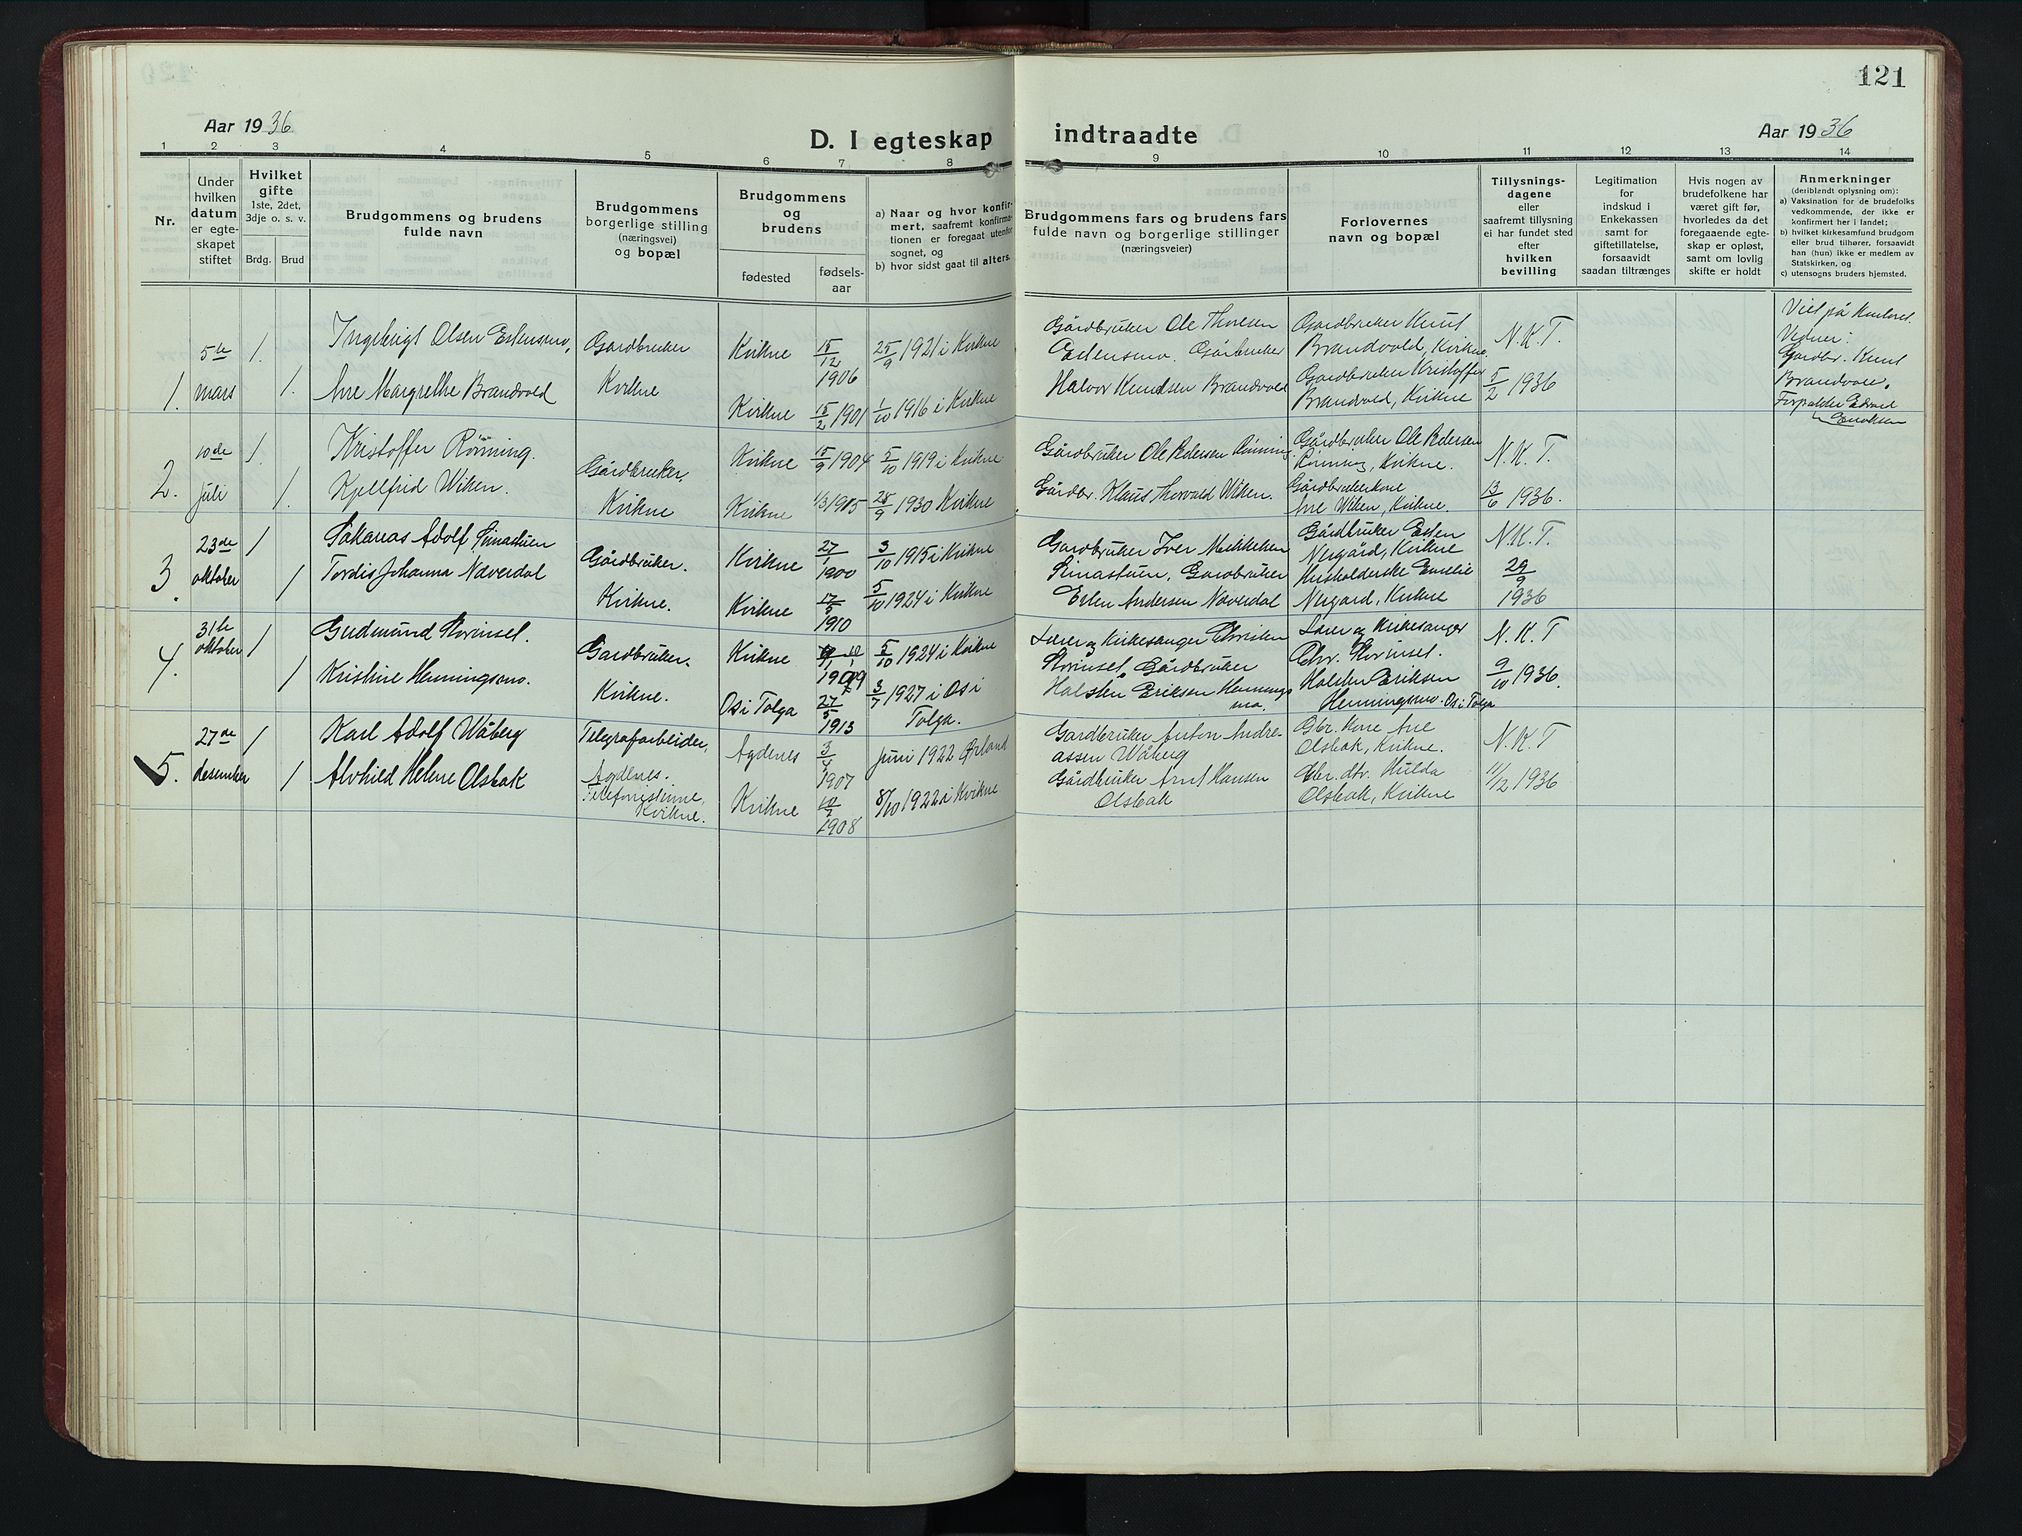 121
Aar 1936
D. I egteskap indtraadte
Aar 1936
1 2 3 4 5 6 7 8 9 10 11 12 13 14
Nr.
Under
hvilken
datum
er egte-
skapet
stiftet
Hvilket
gifte
1ste, 2det,
3dje o. s. v.
Brdg. Brud
Brudgommens og brudens
fulde navn
Brudgommens
borgerlige stilling
(næringsvei)
og bopæl
Brudgommens
og
brudens
fødested
fødsels-
aar
a) Naar og hvor konfir-
mert, saafremt konfirma-
tionen er foregaat utenfor
sognet, og
b) hvor sidst gaat til alters.
Brudgommens fars og brudens fars
fulde navn og borgerlige stillinger
(næringsveier)
Forlovernes
navn og bopæl
Tillysnings-
dagene
eller
saafremt tillysning
ei har fundet sted
efter
hvilken
bevilling
Legitimation
for
indskud i
Enkekassen
samt for
giftetillatelse,
forsaavidt
saadan tiltrænges
Hvis nogen av
brudefolkene har
været gift før,
hvorledes da det
foregaaende egte-
skap er opløst,
samt om lovlig
skifte er holdt
Anmerkninger
(deriblendt oplysning om):
a) Vaksination for de brudefolks
vedkommende, der ikke er
konfirmert her i landet;
b) hvilket kirkesamfund brudgom
eller brud tilhører, forsaavidt
han (hun) ikke er medlem av
Statskirken, og
c) utensogns bruders hjemsted.
1.
5te
mars
1.
1.
Ingebrigt Olsen Estensmo,
Ane Margrethe Brandvold
Gardbruker
Kvikne
Kvikne 15/12 1906 25/9 1921 i Kvikne
Kvikne 15/2 1901 1/10 1916 i Kvikne
Gårdbruker Ole Thoresen
Estensmo. Gårbruker
Halvor Knudsen Brandvold
Gardbruker Knut
Brandvold, Kvikne
Gardbruker Kristoffer
Brandvold, Kvikne
N.K.T.
5/2 1936
Viet på Kontoret.
Vidner:
Gardbr. Knut
Brandvold,
Forpakter Edvard
2.
10de
juli
1.
1.
Kristoffer Rønning.
Kjellfrid Wiken.
Gårdbruker,
Kvikne
Kvikne 15/9 1904 5/10 1919 i Kvikne
Kvikne 1/3 1915 28/9 1930 Kvikne
Gårdbruker Ole Pedersen Rønning
Gårdbr. Klaus Thorvald Wiken.
Gårdbruker Ole Pedersen
Rønning, Kvikne.
Gårdbrukerkone
Ane Wiken, Kvikne.
N.K.T.
13/6 1936.
3.
23de
oktober
1
1
Sakarias Adolf Simastuen
Tordis Johanna Næverdal
Gårdbruker.
Kvikne.
Kvikne 27/1 1900 3/10 1915 i Kvikne
Kvikne 17/5 1910 5/10 1924 i Kvikne
Gardbruker Iver Mikkelsen
Simastuen, Gardbruker
Esten Andersen Næverdal
Gårdbruker Esten
Nergård, Kvikne
Husholderske Emelie
Nergard, Kvikne
N.K.T.
29/9
1936
4.
31te
oktober
1
1
Gudmund Storinset.
Kristine Henningsmo.
Gardbruker.
Kvikne.
Kvikne 10/1 1909 5/10 1924 i Kvikne
Os i Tolga 27/5 1913 3/7 1927 i Os i
Tolga.
Lærer og Kirkesanger Christen
Storinset. Gårdbruker
Halsten Eriksen Hennings
mo.
Lærer og Kirkesanger
Chr. Storinset.
Halsten Eriksen
Henningsmo. Os i Tolga
N.K.T
9/10 1936.
5.
27de
desember
1
1
Karl Adolf Wåberg
Alvhild Helene Olsbak
Telegrafarbeider,
Agdenes.
Telefonistinne,
Kvikne.
Agdenes 3/4 1907 juni 1922 Ørland
Kvikne 10/7 1908 8/10 1922 i Kvikne
Gardbruker Anton Andre-
assen Wåberg
Gårdbruker Arnt Hansen
Olsbak
Gbr. Kone Ane
Olsbak, Kvikne.
Gbr. dtr. Hulda
Olsbak, Kvikne
N.K.T
11/12 1936